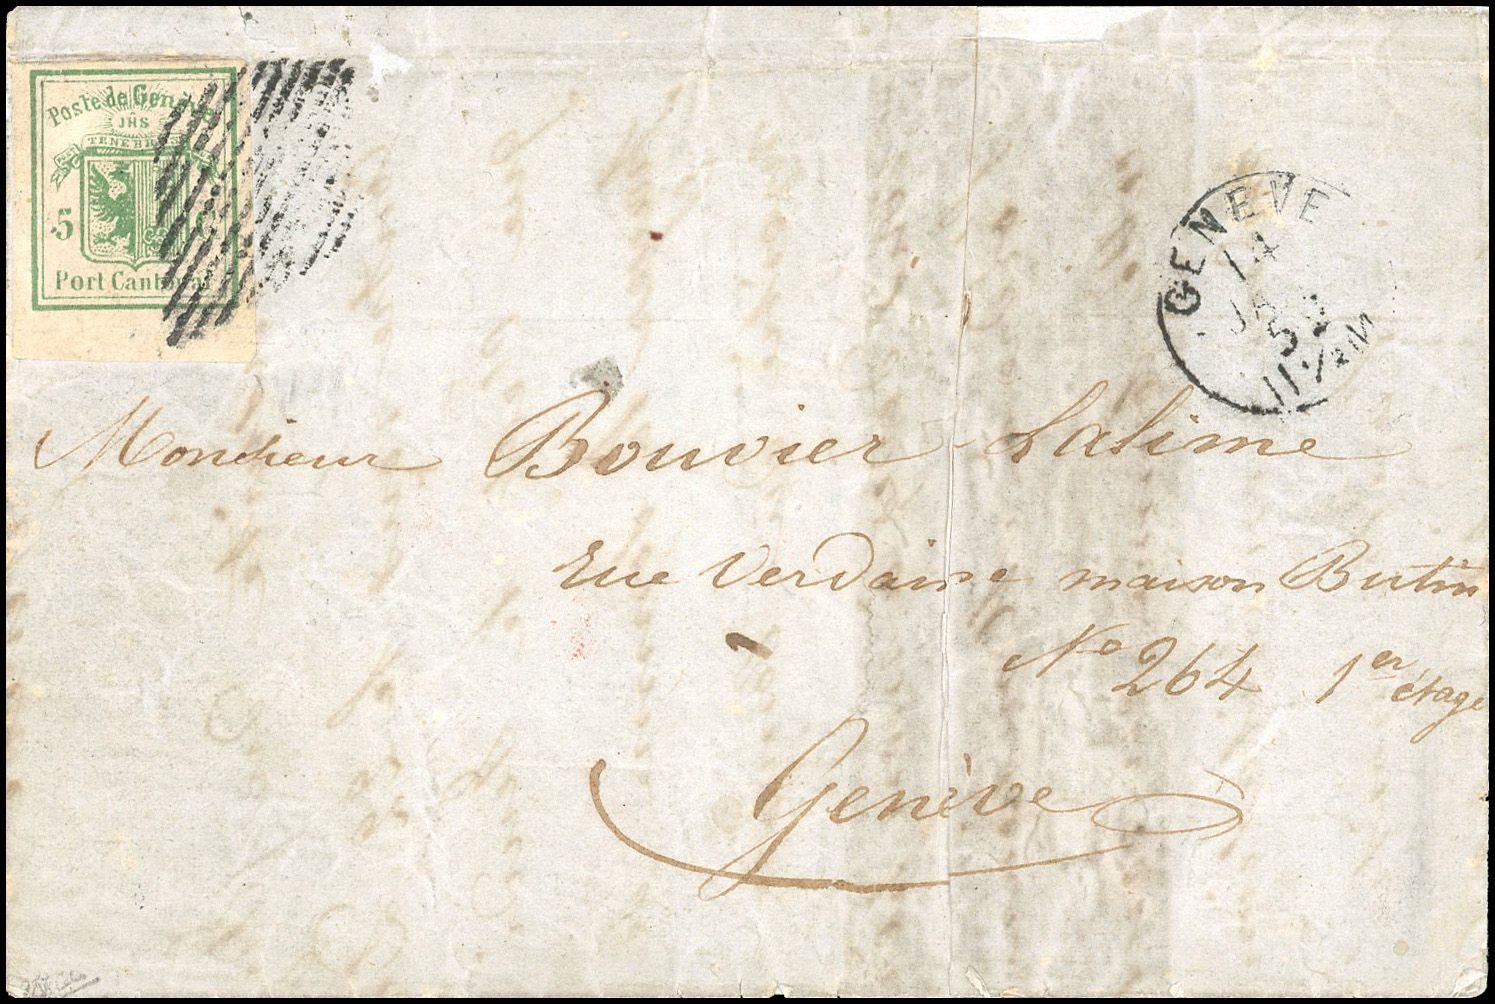 Poste de Genève
JHS
TENEBR
5
Port Cantonal
GENEVE
14
JA
5
11½M
Monsieur Bouvier Latime
Rue Verdaine maison Butin
No 264 1er étage
Genève